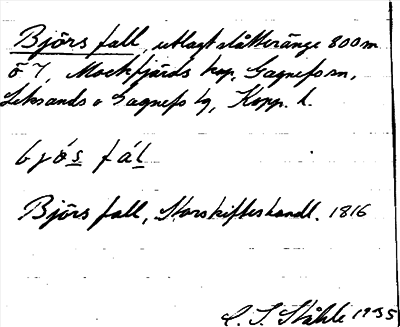 Björs fall, utlagt slåtteränge 800 m
ö 7, Mockfjärds kap., Gagnefs sn,
Leksands o Gagnefs tg, Kopp. l.
bjó̀s fál
Björs fall, Storskifteshandl. 1816
C. I. Ståhle 1935